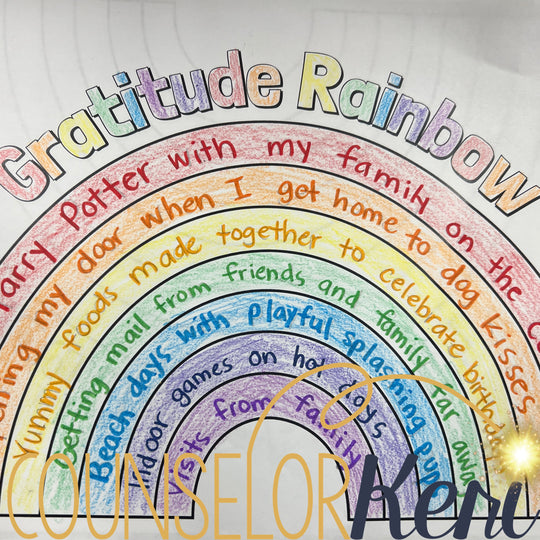 Gratitude Rainbow
Harry Potter with my family on the
my door when I get home to dog kisses
Yummy foods made together to celebrate
Getting mail from friends and family far away
Beach days with playful splashing pups
Indoor games on hot days
Visits from family
COUNSELOR Keri